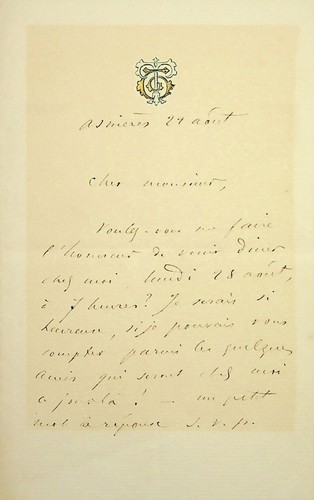 Asnières 24 août
Cher monsieur,
Voulez-vous me faire
l'honneur de venir diner
chez moi, lundi 28 août,
à 7 heures? Je serais si
heureux, si je pouvais vous
compter parmi les quelques
amis qui seront chez moi
! — un petit
mot de réponse s.v.p.